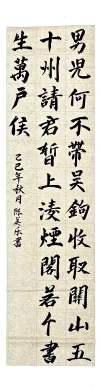 男兒何不帶吳鉤收取關山五
十州請君暫上淩煙閣若个書
生萬户侯
乙巳年秋月 陈英示書